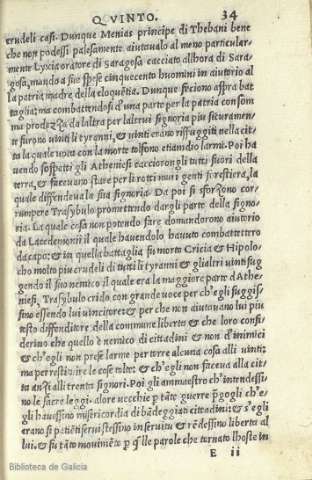 QVINTO. 34
crudeli casi. Dunque Menias principe di Thebani bene
che non podessi palesamente aiutoualo al meno particular-
mente Lycia oratore di Saragosa cacciato alhora di Sara-
gosa, mando a sue spese cinquecento huomini in aiutorio al
la patria madre della eloquētia. Dunque feciono aspra bat
taglia; ma combattendosi d'una parte per la patria con som
ma prodezza da laltra per laltrui signoria piu sicuramen-
te furono uinti li tyranni, & uinti erano riffuggiti nella cit
ta laquale uota con la morte tolsono etiamdio larmi. Poi ha
uendo sospatti gli Atheniesi cacciorongli tutti fuori della
terra, & faceuano stare per li rotti muri genti forestiera, la
quale diffendeua la sua signoria. Da poi si sforzono cor-
rumpere Trasybulo promettendo dargli parte della signo-
ria. Laquale cosa non potendo fare domandorono aiutorio
da Lacedemonii il quale hauendolo hauuto combatterono
da capo: & in quella battaglia fu morto Cricia & Hipolo-
cho molto piu crudeli di tutti li tyranni & gli altri uinti fug
gendo il suo nemico il quale era la maggiore parte d'Athe-
niesi, Trasybulo crido con grande uoce per ch'egli fuggis-
sino essendo lui uincitore: & per che non aiutauano lui piu
tosto diffenditore della commune liberta & che loro consi-
derino che quello è nemico di cittadini & non d'inimici
& ch'egli non prese larme per torre alcuna cosa alli uinti;
ma per restituire le cose tolte: & ch'egli non faceua alla cit-
ta anzi alli trenta signori. Poi gli ammaestro ch'intendessi-
no le sacre leggi, alore uecchie p tāto guerre p̄gogli ch'e-
gli haussino misericordia di bādeggiati cittadini: & s'egli
erano si patiēti seruistessino in seruitu & rēdessino liberta al
lui. & fu tāto mouimēto p q̄lle parole che tornato lhoste in
E ii
Biblioteca de Galicia